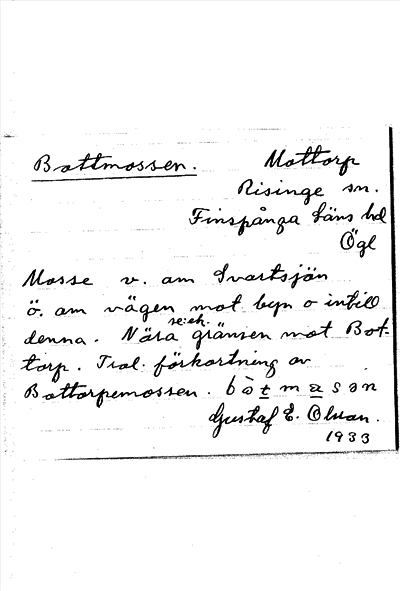 Bottmossen. Mottorp
Risinge sn.
Finspånga läns hd
Ögl
Mosse v. om Svartsjön
ö. om vägen mot byn o intill
se: eh.
denna. Nära gränsen mot Bot-
torp. Trol. förkortning av
Bottorpemossen. bòtmasɘn
Gustaf E. Olsson.
1933